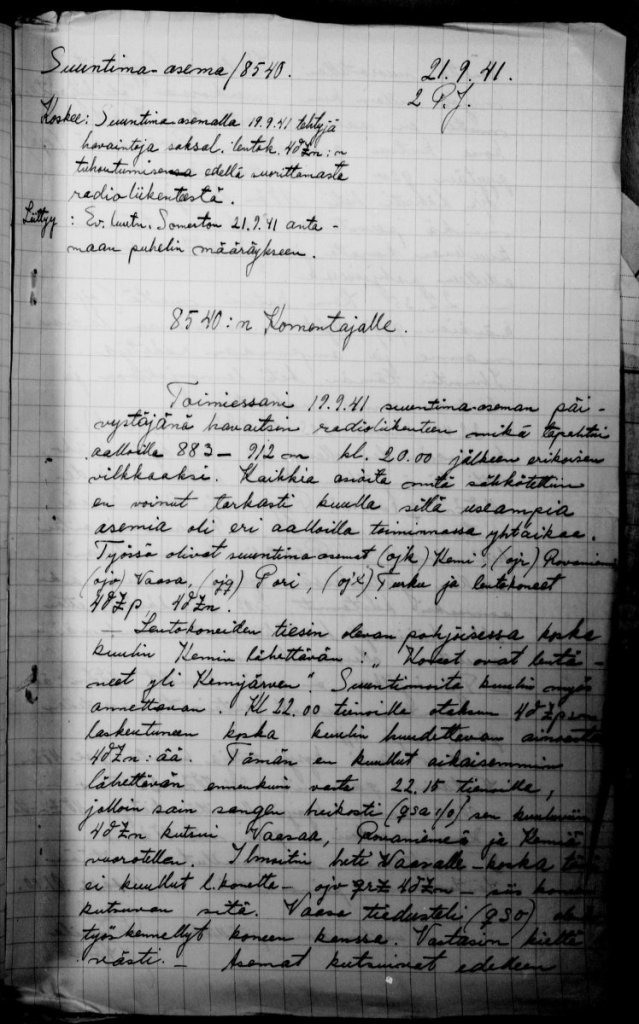 Suuntima-asema/8540.
21.9.41.
2 P.J.
Koskee: Suuntima-asemalla 19.9.41 tehtyjä
havaintoja saksal. lentok. 4dZn:n
tuhoutumisensa edellä suorittamasta
radioliikenteestä.
Liittyy: Ev. luutn. Somerton 21.9.41 anta-
maan puhelin määräykseen.
8540:n Komentajalle.
Toimiessani 19.9.41 suuntima-aseman päi-
vystäjänä havaitsin radioliikenteen mikä tapahtui
aalloilla 883 - 912 m kl. 20.00 jälkeen erikoisen
vilkkaaksi. Kaikkia asioita mitä sähkötettiin
en voinut tarkasti kuulla sillä useampia
asemia oli eri aalloilla toiminnassa yhtäaikaa.
Työssä olivat suuntima asemat (ojk) Kemi, (ojr) Rovaniemi
(ojv) Vaasa, (ojq) Pori, (ojx) Turku ja lentokoneet
4dZp, 4dZn.
- Lentokoneiden tiesin olevan pohjoisessa koska
kuulin Kemin lähettävän: „Koneet ovat lentä-
neet yli Kemijärven". Suuntimoita kuulin myös
annettavan. Kl 22.00 tienoilla otaksun 4dZp:n
laskeutuneen koska kuulin huudettavan ainoastaan
4dZn:ää. Tämän en kuullut aikaisemmin
lähettävän ennenkuin vasta 22.15 tienoilla,
jolloin sain sangen heikosti (qsa 1/0) sen kuuluviin
4dZn kutsui Vaasaa, Rovaniemeä ja Kemiä
vuorotellen. Ilmoitin heti Vaasalle - koska
ei kuullut l.konetta - ojv qrz 4dZn - siis koneen
kutsuvan sitä. Vaasa tiedusteli (qso)
työskennellyt koneen kanssa. Vastasin kieltä-
västi. - Asemat kutsuivat edelleen